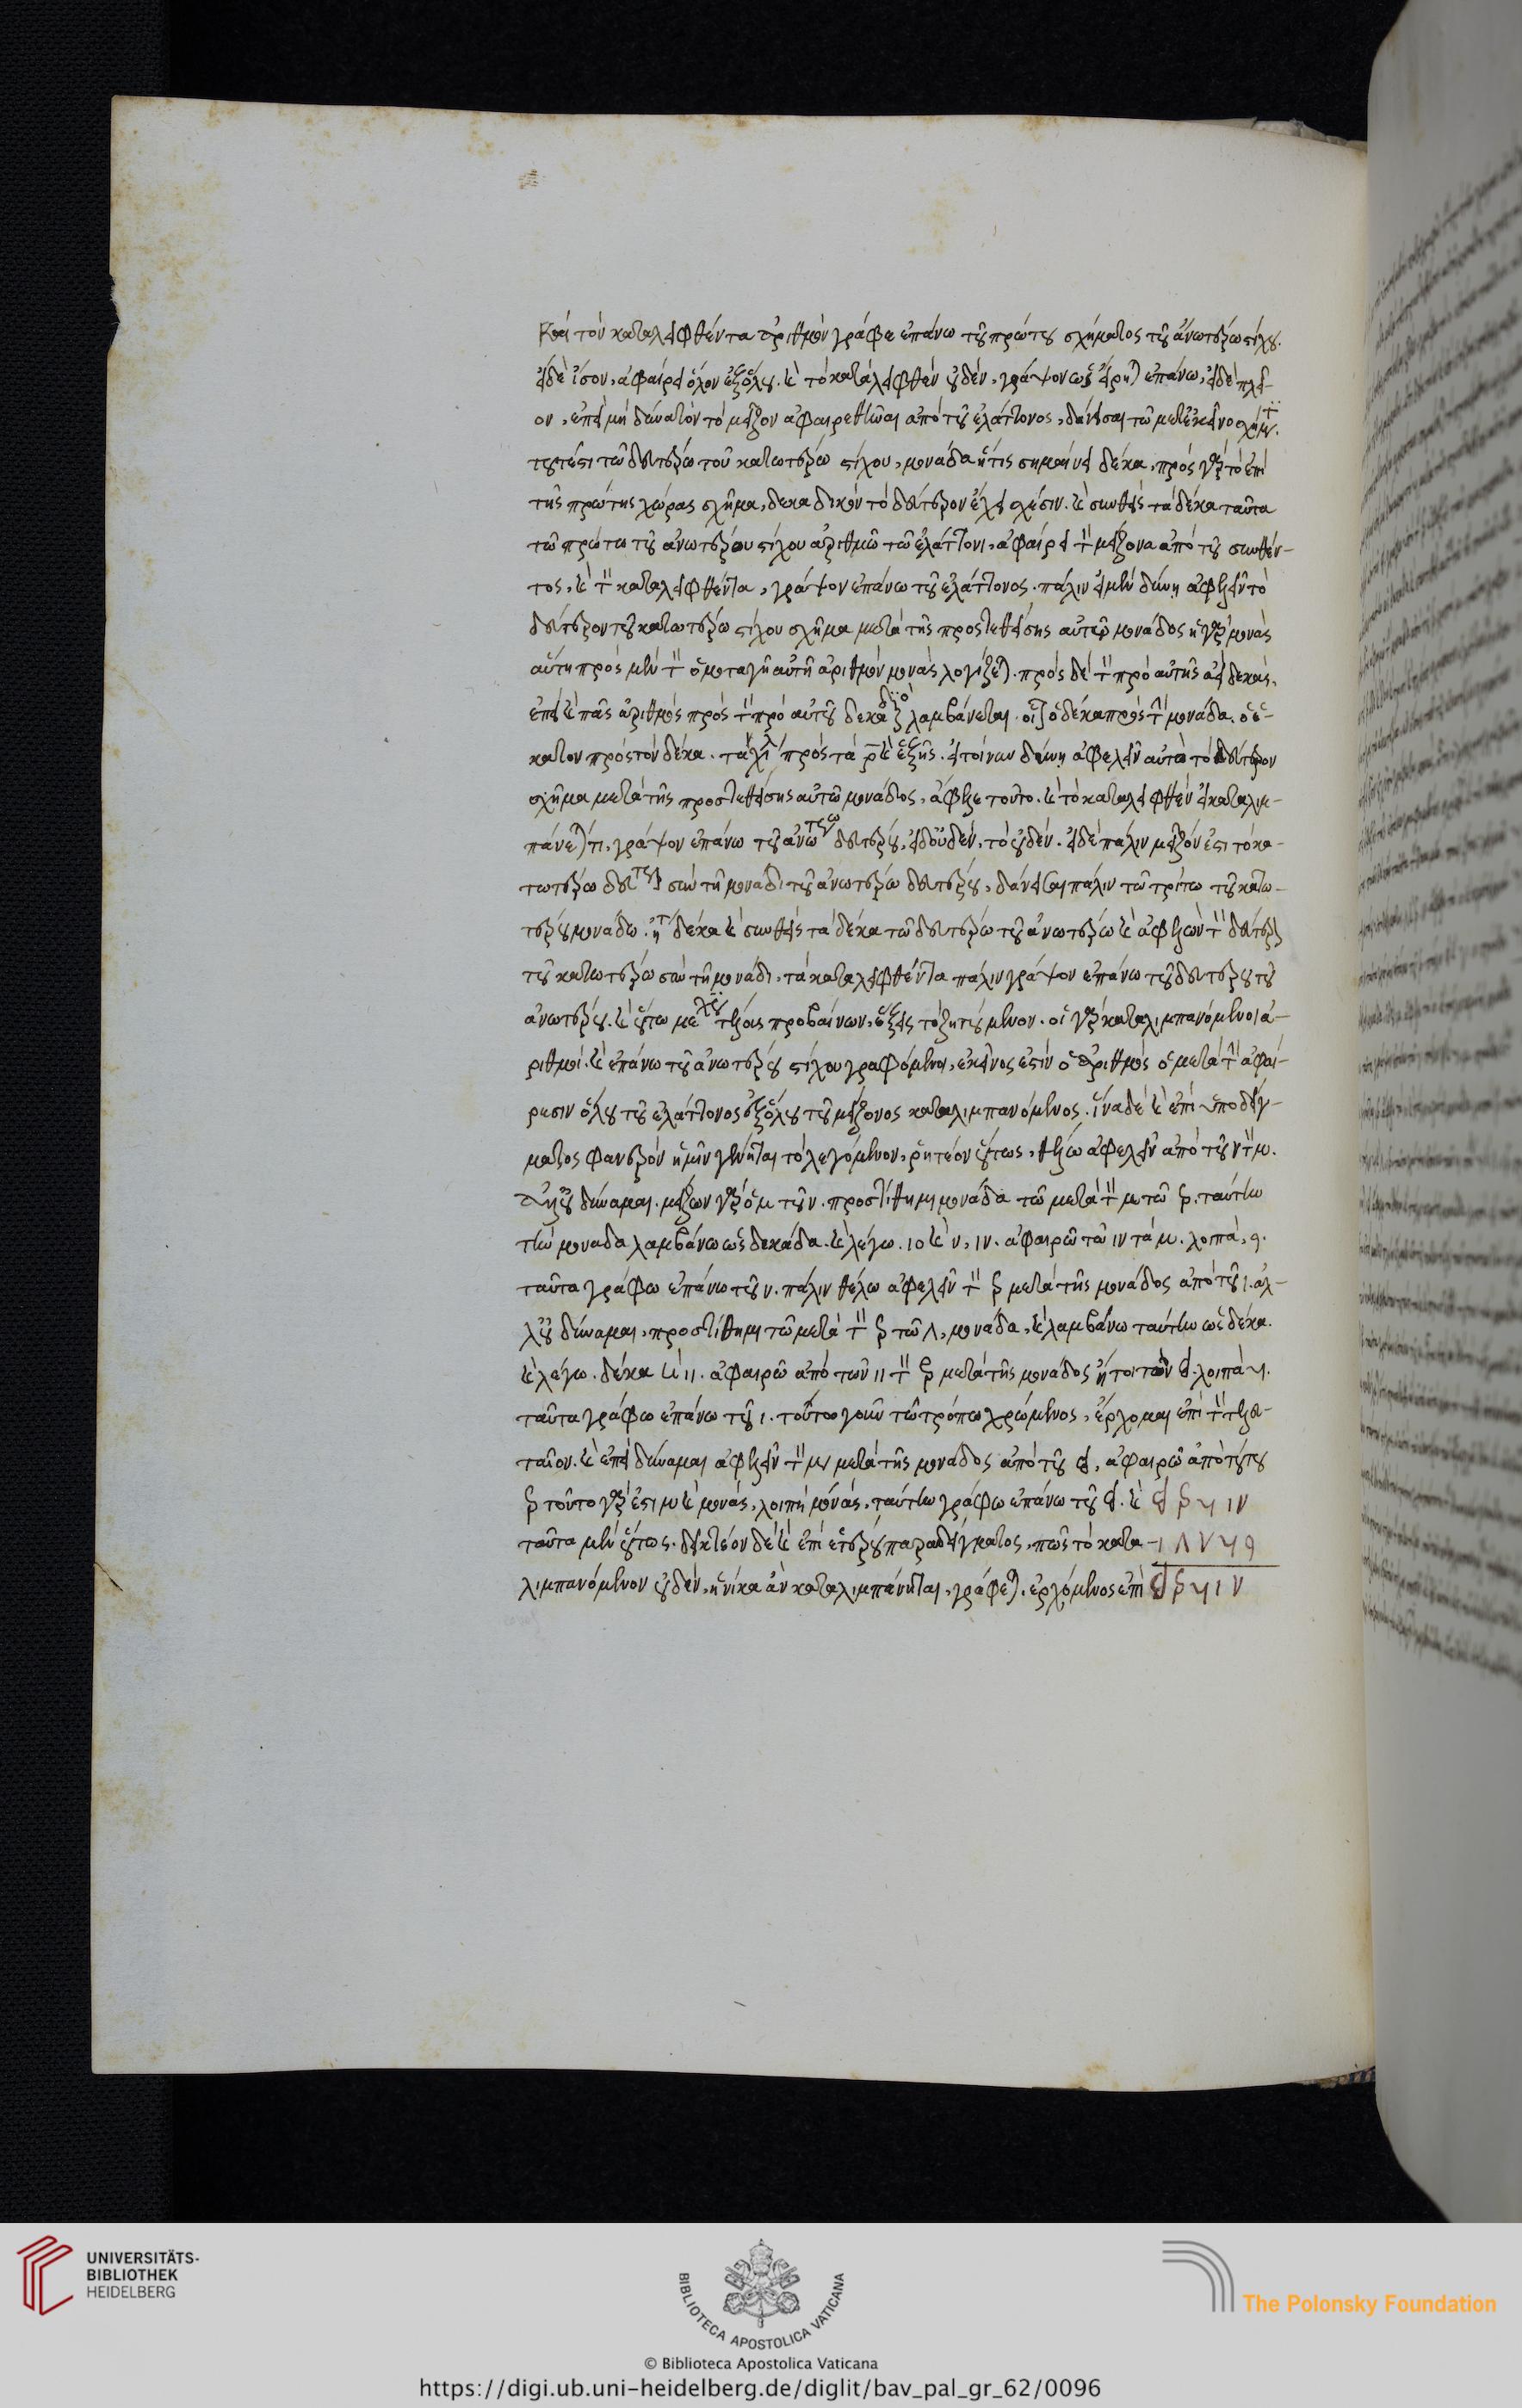 Καὶ τὸν καταλειφθέντα ἀριθμὸν γράφε ἐπάνω τοῦ πρώτου σχήματος τοῦ ἀνωτέρω στίχου.
εἰ δὲ ἴσον, ἀφαίρει ὅλον ἐξ ὅλου. καὶ τὸ καταλειφθὲν οὐδέν, γράψον ὡς εἴρηται ἐπάνω, εἰ δὲ πλεῖ-
ον, ἐπεὶ μὴ δυνατὸν τὸ μεῖζον ἀφαιρεθῆναι ἀπὸ τοῦ ἐλάττονος, δάνεισαι τῷ μετ' ἐκεῖνο
τουτέστι τῷ δευτέρω τοῦ κατωτέρω στίχου, μονάδα ἥτις σημαίνει δέκα, πρὸς γὰρ τὸ ἐπὶ
τῆς πρώτης χώρας σχῆμα, δεκαδικὸν τὸ δεύτερον ἔχει σχέσιν. καὶ συνθεὶς τὰ δέκα ταῦτα
τῷ πρώτω τοῦ ἀνωτέρου στίχου ἀριθμῷ τῷ ἐλάττονι, ἀφαίρει τὸν μείζονα ἀπὸ τοῦ συνθέν-
τος, καὶ τὸν καταλειφθέντα, γράψον ἐπάνω τοῦ ἐλάττονος. πάλιν εἰ μὲν δύνῃ ἀφελεῖν τὸ
δεύτερον τοῦ κατωτέρω στίχου σχῆμα μετὰ τῆς προστεθείσης αὐτῷ μονάδος ἡ γὰρ μονὰς
αὕτη πρὸς μὲν τὸν ὁμοταγῆ αὐτῇ ἀριθμὸν μονὰς λογίζεται. πρὸς δὲ τὸν πρὸ αὐτῆς ἀεὶ δεκάς.
ἐπεὶ καὶ πᾶς ἀριθμὸς πρὸς τὸν πρὸ αὐτοῦ λαμβάνεται. οἷον ὁ δέκα πρὸς τὴν μονάδα. ὁ ἑ-
κατὸν πρὸς τὸν δέκα. τὰ χίλια πρὸς τὰ ρ καὶ ἑξῆς. εἰ τοίνυν δύνῃ ἀφελεῖν αὐτὸ τὸ δεύτερον
σχῆμα μετὰ τῆς προστεθείσης αὐτῷ μονάδος, ἄφελε τοῦτο. καὶ τὸ καταλειφθὲν εἰ καταλιμ-
πάνεταί τι, γράψον ἐπάνω τοῦ ἀνωτέρω δευτέρου, εἰ δ' οὐδέν, τὸ οὐδέν. εἰ δὲ πάλιν μεῖζόν ἐστι τὸ κα-
τωτέρω δεύτερον σὺν τῇ μονάδι τοῦ ἀνωτέρω δευτέρου, δάνεισαι πάλιν τῷ τρίτω τοῦ κατω-
τέρου μονάδα. ἤτοι δέκα καὶ συνθεὶς τὰ δέκα τῷ δευτέρω τοῦ ἀνωτέρω καὶ ἀφελὼν τὸν δεύτερον
τοῦ κατωτέρω σὺν τῇ μονάδι, τὰ καταλειφθέντα πάλιν γράψον ἐπάνω τοῦ δευτέρου τοῦ
ἀνωτέρου. καὶ οὕτω μέχρι τέλους προβαίνων, ἕξεις τὸ ζητούμενον. οἱ γὰρ καταλιμπανόμενοι ἀ-
ριθμοί. καὶ ἐπάνω τοῦ ἀνωτέρου στίχου γραφόμενοι, ἐκεῖνος ἐστὶν ὁ ἀριθμὸς ὁ μετὰ τὴν ἀφαί-
ρεσιν ὅλου τοῦ ἐλάττονος ἐξ ὅλου τοῦ μείζονος καταλιμπανόμενος. ἵνα δὲ καὶ ἐπὶ ὑποδείγ-
ματος φανερὸν ἡμῖν γένηται τὸ λεγόμενον, ῥητέον οὕτως, θέλω ἀφελεῖν ἀπὸ τοῦ ν τὸν μ.
ἀλλ' οὐ δύναμαι. μείζων γὰρ ὁ μ τοῦ ν. προστίθημι μονάδα τῷ μετὰ τὸν μ τῷ ϛ. ταύτην
τὴν μονάδα λαμβάνω ὡς δεκάδα. καὶ λέγω. ιο καὶ ν, ιν. ἀφαιρῶ τῶν ιν τὰ μ. λοιπά, ϙ.
ταῦτα γράφω ἐπάνω τοῦ ν. πάλιν θέλω ἀφελεῖν τὸν ϛ μετὰ τῆς μονάδος ἀπὸ τοῦ ι. ἀλ-
λ' οὐ δύναμαι, προστίθημι τῷ μετὰ τὸν ϛ τῷ Λ, μονάδα, καὶ λαμβάνω ταύτην ὡς δέκα.
καὶ λέγω. δέκα καὶ ι ιι. ἀφαιρῶ ἀπὸ τῶν ιι τὸν ϛ μετὰ τῆς μονάδος ἤτοι τῶν . λοιπὰ Ч.
ταῦτα γράφω ἐπάνω τοῦ ι. τούτω γοῦν τῷ τρόπω χρώμενος, ἔρχομαι ἐπὶ τὸν τελευ-
ταῖον. καὶ ἐπεὶ δύναμαι ἀφελεῖν τὸν μετὰ τῆς μονάδος ἀπὸ τοῦ , ἀφαιρῶ ἀπὸ τούτου
τοῦτο γάρ ἐστι καὶ μονάς, λοιπὴ μονάς, ταύτην γράφω ἐπάνω τοῦ . καὶ
ταῦτα μὲν οὕτως. δεικτέον δὲ καὶ ἐπὶ ἑτέρου παραδείγματος, πῶς τὸ κατα-
λιμπανόμενον οὐδέν, ἡνίκα ἂν καταλιμπάνηται, γράφεται. ἐρχόμενος ἐπὶ
UNIVERSITÄTS-
BIBLIOTHEK
HEIDELBERG
BIBLIOTECA APOSTOLICA VATICANA
The Polonsky Foundation
© Biblioteca Apostolica Vaticana
https://digi.ub.uni-heidelberg.de/diglit/bav_pal_gr_62/0096